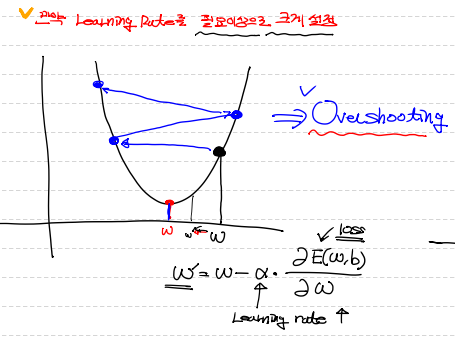 만약 Learning Rate를 필요이상으로 크게 설정
⇒ Overshooting
w w' ← w
loss
w' = w - α · ∂E(w,b) / ∂w
Learning rate ↑